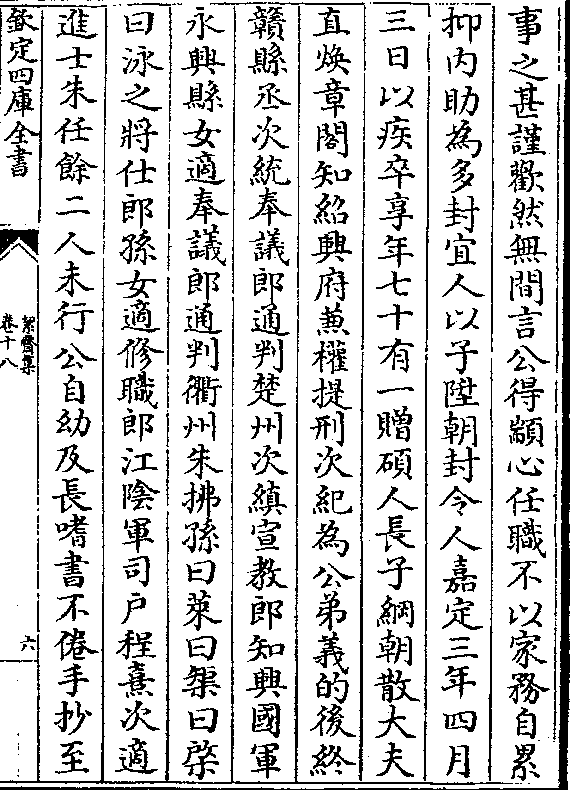 事之甚謹歡然無間言公得顓心任職不以家務自累
抑内助為多封宜人以子陞朝封令人嘉定三年四月
三日以疾卒享年七十有一贈碩人長子綱朝散大夫
直煥章閣知紹興府兼權提刑次紀為公弟義的後終
贛縣丞次統奉議郎通判楚州次縝宣教郎知興國軍
永興縣女適奉議郎通判衢州朱拂孫曰萊曰榘曰棨
曰泳之將仕郎孫女適修職郎江陰軍司户程熹次適
進士朱任餘二人未行公自幼及長嗜書不倦手抄至
欽定四庫全書
絜齋集
卷十八
六